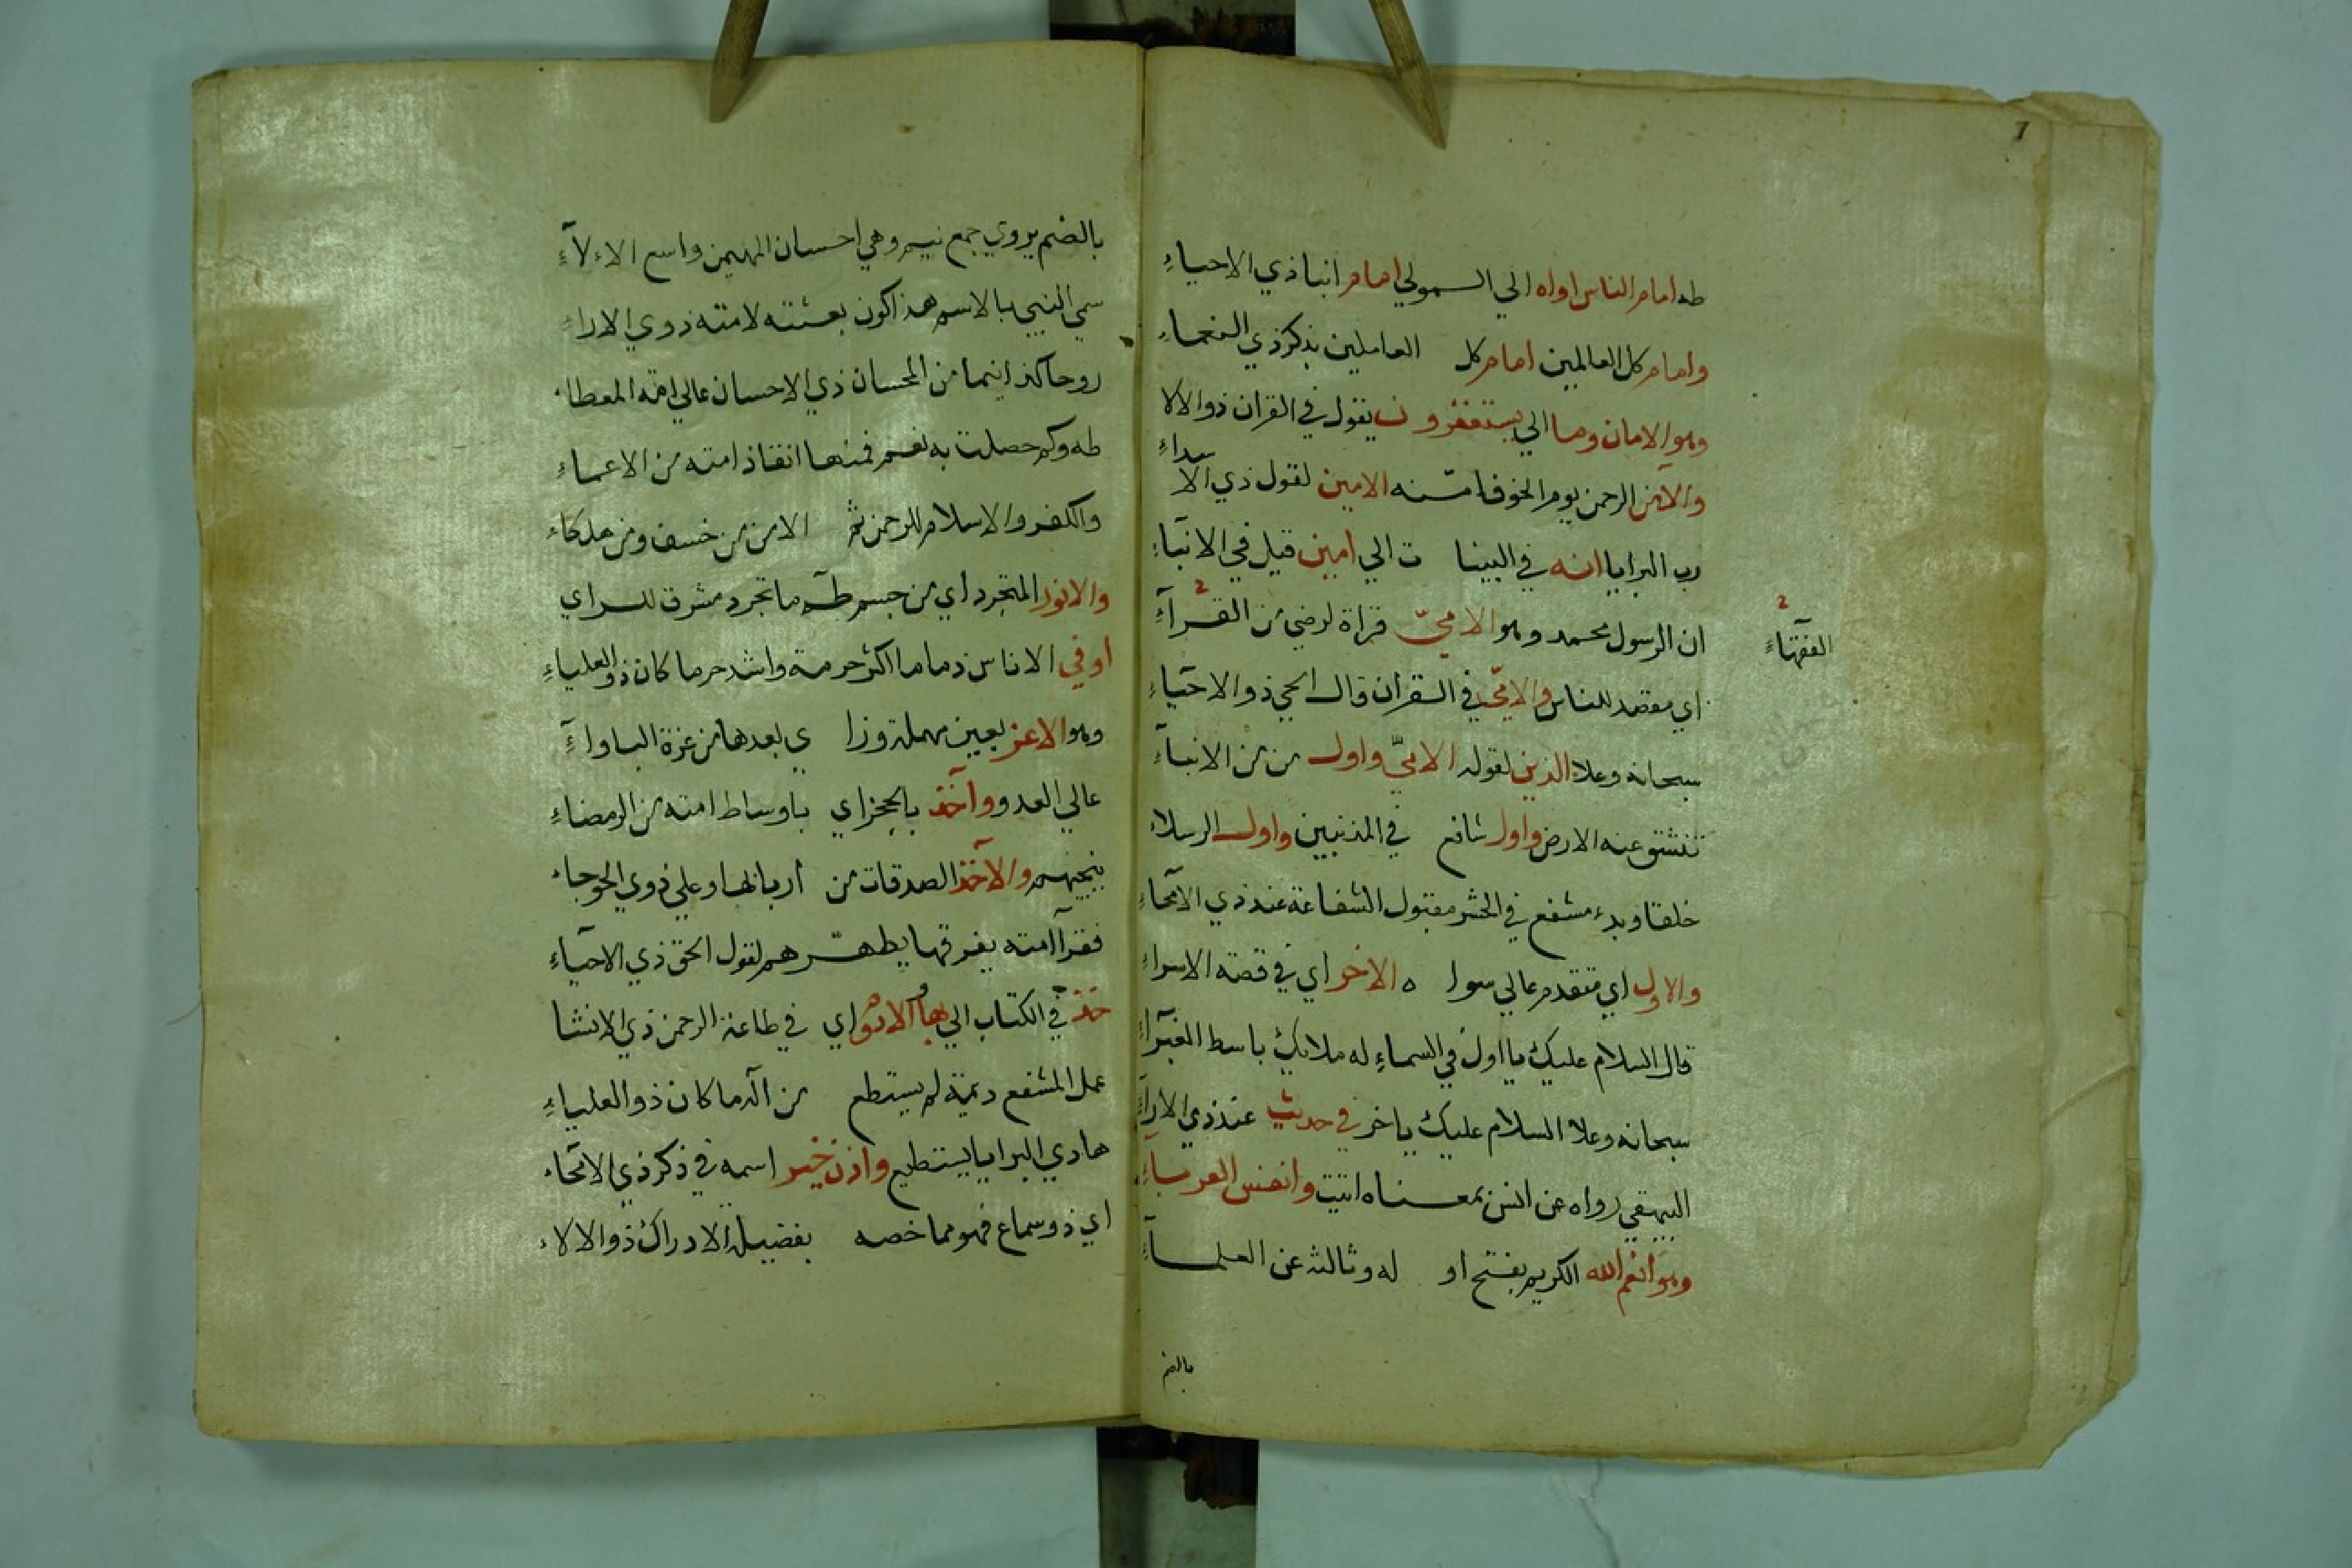 طه امام الناس اواه الي السمولي امام انبا ذي الاحياءِ
وامام كل العالمين امام كل العاملين بذكر ذي النعماءِ
وهو الامان وما الي يستغفرون يقول في القران ذو الالا
والآمن الرحمن يوم الخوف امّنه الامين لقول ذي الا سداءِ
رب البرايا انه في البينا ت الي امين قيل في الانبآءِ
ان الرسول محمد وهو الامّيّ قراة لرضي من القرآءِ
الفقهاءِ
اي مقصد للناس والامّيّ في القرأن قال الحي ذو الاحيآءِ
سبحانه وعلا الذين لقوله الاميّ واول من من الانبآءِ
تنشق عنه الارض واول شافع في المذنبين واول الرسلاءِ
خلقا وبدء مشفع في الحشر مقبول الشفاعة عند ذي الامحاءِ
والاول اي متقدم عالي سوا ه الاخر اي في قصة الاسراءِ
قال السلام عليك يا اول في السماءِ له ملايك باسط الغبرآءِ
سبحانه وعلا السلام عليك ياخر في حديث عند ذي الارآءِ
البيهقي رواه عن انس بمعناه اتيت وانفس العرباءِ
وهو انعم الله الكريم بفتح او له وثالثه عن العلمآءِ
بالضم
بالضم يروي جمع وهي احسان المهيمن واسع الاءلآءِ
سمي النبي بالاسم هذا كون بعثته لامته ذوي الاراءِ
روحا كذا نعما من المحسان ذي الاحسان عالي امة المعطاء
طه وكم حصلت به نعم فمنها انقاذ امته من الاعماءِ
والكفر والاسلام للرحمن ثم الامن من خسف ومن هلكاء
والانور المتجرد اي من جسم طه ما تجرد مشرق للراي
اوفي الاناس ذماما اكثر حرمة واشد حرما كان ذو العلياءِ
وهو الاعز بعين مهملة وزا ي بعدها من عزة الباواءِ
عالي العدو وآخذ بالحجز اي باوساط امته من الرمضاءِ
ينجيهم والآخذ الصدقات من اربابها وعلي ذوي الحوجاء
فقرآ امته يفرقها يطهّرهم لقول الحق ذي الاحيآءِ
خذ في الكتاب الي بها الادوم اي في طاعة الرحمن ذي الانشا
عمل المشفع ديمة لم يستطع من الّ ما كان ذو العلياءِ
هادي البرايا يستطيع واذن خير اسمه في ذكر ذي الامحاء
اي ذو سماع فهو مما خصه بفضيلة الادراك ذو الالاء